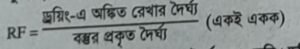 RF = ড্রয়িং-এ অঙ্কিত রেখার দৈর্ঘ্য / বস্তুর প্রকৃত দৈর্ঘ্য (একই একক)